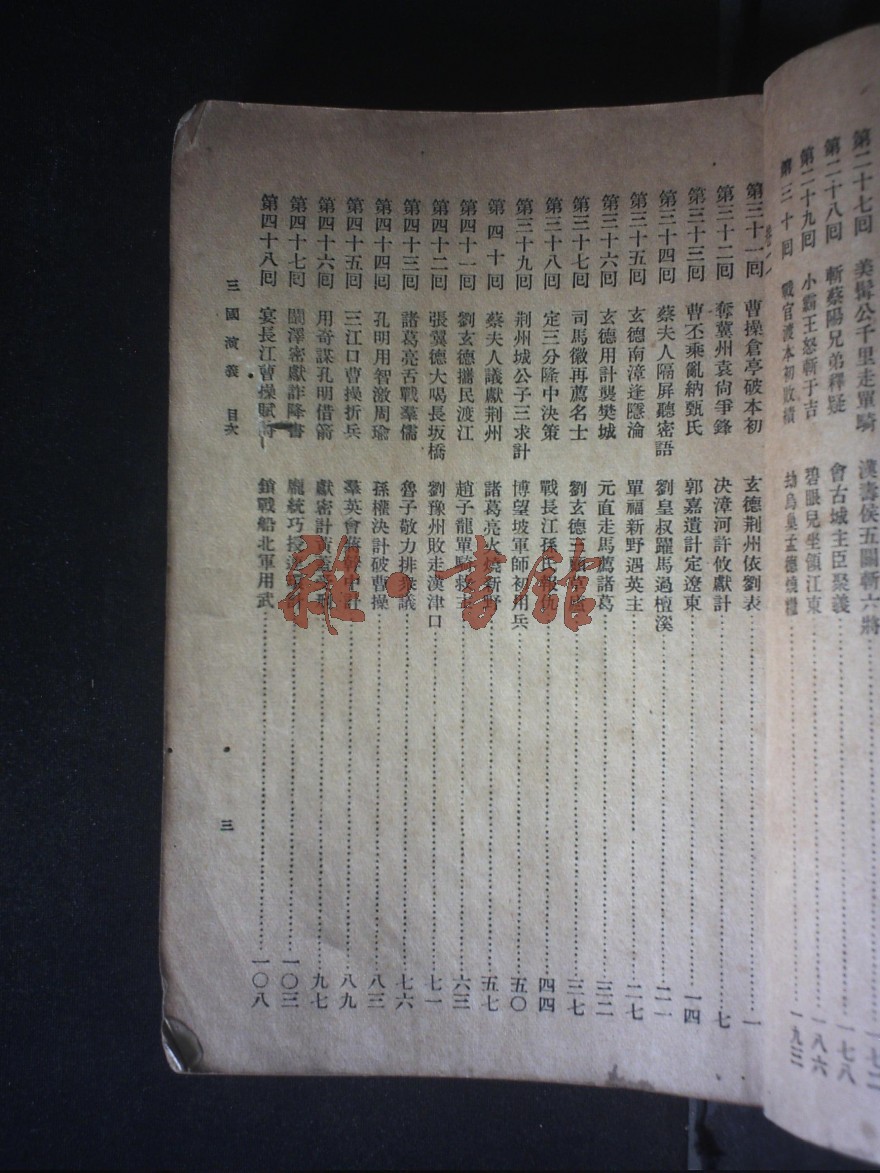 第二十七回 美髯公千里走單騎 漢壽侯五關斬六將 一七二
第二十八回 斬蔡陽兄弟釋疑 會古城主臣聚義 一七八
第二十九回 小霸王怒斬于吉 碧眼兒坐領江東 一八六
第三十回 戰官渡本初敗績 劫烏巢孟德燒糧 一九三
第三十一回 曹操倉亭破本初 玄德荆州依劉表 一
第三十二回 奪冀州袁尙爭鋒 决漳河許攸獻計 七
第三十三回 曹丕乘亂納甄氏 郭嘉遺計定遼東 一四
第三十四回 蔡夫人隔屏聽密語 劉皇叔躍馬過檀溪 二一
第三十五回 玄德南漳逢隱淪 單福新野遇英主 二七
第三十六回 玄德用計襲樊城 元直走馬薦諸葛 三二
第三十七回 司馬徽再薦名士 劉玄德三顧草廬 三七
第三十八回 定三分隆中決策 戰長江孫氏報仇 四四
第三十九回 荆州城公子三求計 博望坡軍師初用兵 五〇
第四十回 蔡夫人議獻荆州 諸葛亮火燒新野 五七
第四十一回 劉玄德攜民渡江 趙子龍單騎救主 六三
第四十二回 張翼德大喝長坂橋 劉豫州敗走漢津口 七一
第四十三回 諸葛亮舌戰羣儒 魯子敬力排衆議 七六
第四十四回 孔明用智激周瑜 孫權決計破曹操 八三
第四十五回 三江口曹操折兵 羣英會蔣幹中計 八九
第四十六回 用奇謀孔明借箭 獻密計黃蓋受刑 九七
第四十七回 闞澤密獻詐降書 龐統巧授連環計 一〇三
第四十八回 宴長江曹操賦詩 鎖戰船北軍用武 一〇八
三國演義 目次 三
雜·書館